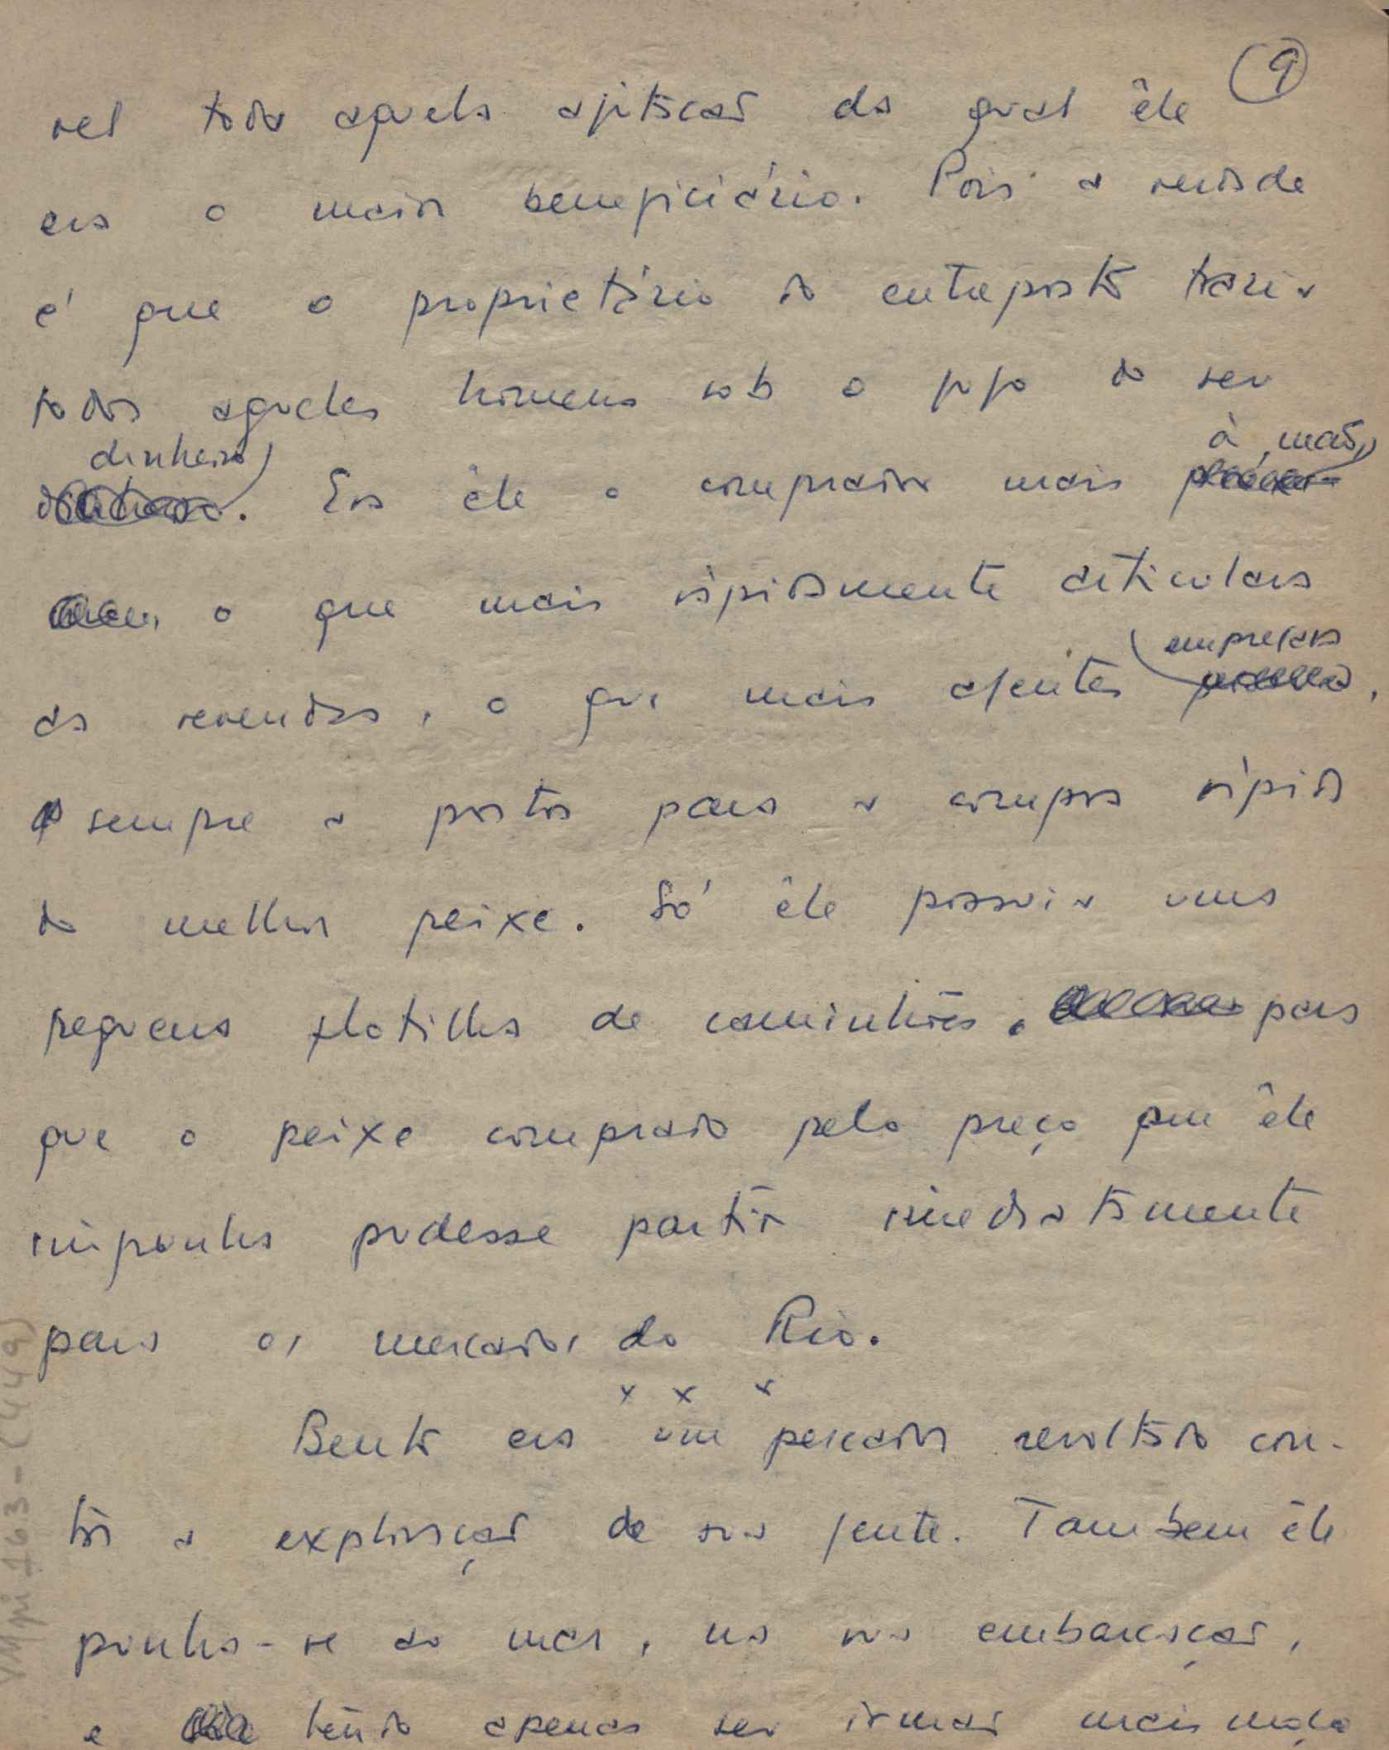 9
vel toda aquela agitação da qual êle
era o maior beneficiário. Pois a verdade
é que o proprietário do entreposto trazia
todos aqueles homens sob o jugo do seu
dinheiro. Era êle o comprador mais à mão,
o que mais ràpidamente articulara
as revendas, o que mais agentes empregara,
sempre a postos para a compra rápida
do melhor peixe. Só êle possuia uma
pequena flotilha de caminhões, para
que o peixe comprado pelo preço que êle
impunha pudesse partir imediatamente
para os mercados do Rio.
x x x
Bento era um pescador revoltado con-
tra a exploração de sua gente. Tambem êle
punha-se ao mar, na sua embarcação,
e tendo apenas seu irmão mais moço